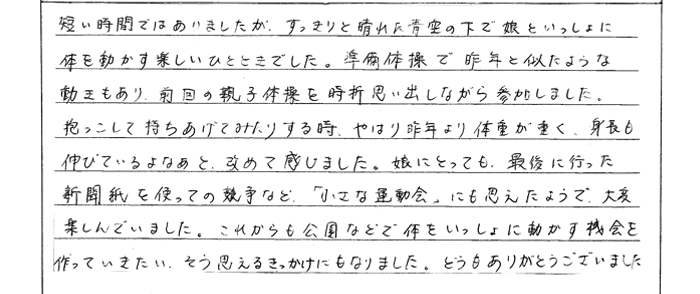 短い時間ではありましたが、すっきりと晴れた青空の下で娘といっしょに
体を動かす楽しいひとときでした。準備体操で昨年と似たような
動きもあり、前回の親子体操を時折思い出しながら参加しました。
抱っこして持ちあげてみたりする時、やはり昨年より体重が重く、身長も
伸びているよなあと、改めて感じました。娘にとっても、最後に行った
新聞紙を使っての競争など、「小さな運動会」にも思えたようで、大変
楽しんでいました。これからも公園などで体をいっしょに動かす機会を
作っていきたい、そう思えるきっかけにもなりました。どうもありがとうございました